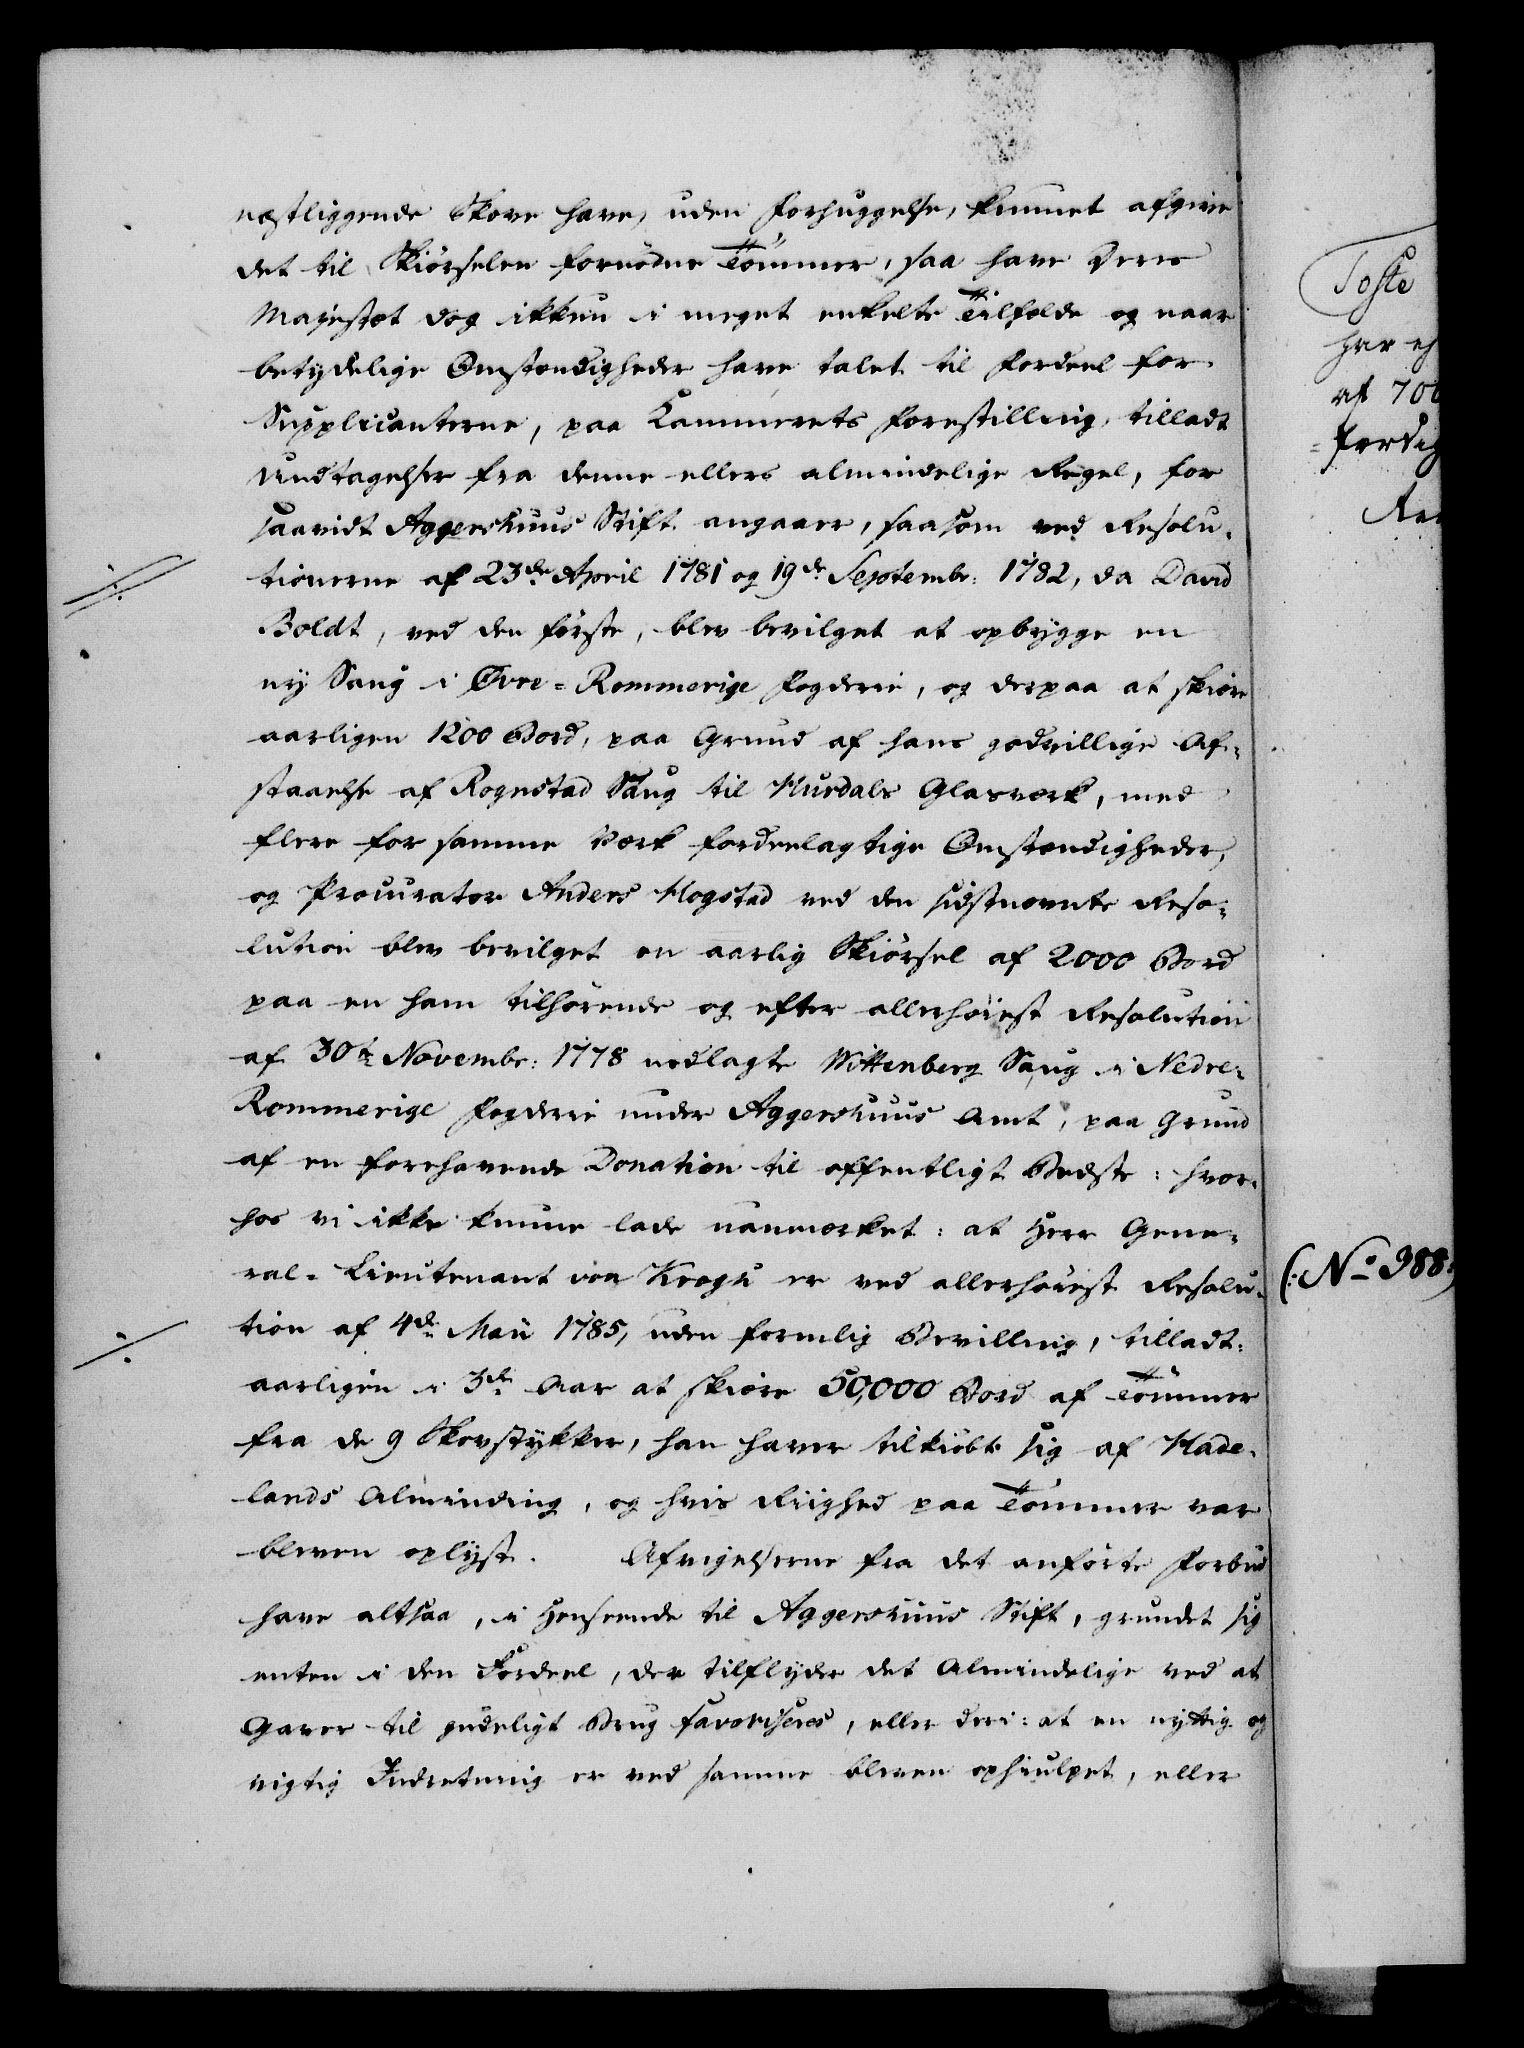 næstliggende Skove have, uden Forhuggelse, kunnet afgive
det til Skiørselen fornødne Tømmer, saa have Deres
Majestæt dog ikkun i meget enkelte Tilfælde og naar
betydelige Omstændigheder have talet til Fordeel for
Supplicanterne, paa Kammerets Forestilling, tilladt
Undtagelser fra denne ellers almindelige Regel, for
saavidt Aggershuus Stift angaaer, saasom ved Resolu-
tionerne af 23de April 1781 og 19de Septembr: 1782, da David
Boldt, ved den første, blev bevilget at opbygge en
ny Saug i Øvre-Rommerige Fogderie, og derpaa at skiære
aarligen 1200 Bord, paa Grund af hans godvillige Af-
staaelse af Rognstad Saug til Hurdals Glasværk, med
flere for samme Værk fordeelagtige Omstændigheder,
og Procurator Anders Mogstad ved den sidstnævnte Reso-
lution blev bevilget en aarlig Skiørsel af 2000 Bord
paa en ham tilhørende og efter allerhøiest Resolution
af 30te Novembr: 1778 nedlagte Wittenberg Saug i Nedre-
Rommerige Fogderie under Aggershuus Amt, paa Grund
af en forehavende Donation til offentligt Bedste: hvor-
hos vi ikke kunne lade uanmærket: at Herr Gene-
ral-Lieutenant von Krogh er ved allerhøiest Resolu-
tion af 4de Maii 1785, uden formlig Bevilling, tilladt
aarligen i 3de Aar at skiære 50,000 Bord af Tømmer
fra de 9 Skovstykker, han haver tilkiøbt sig af Hade-
lands Alminding, og hvis Riighed paa Tømmer var
bleven oplyst. Afvigelserne fra det anførte Forbud
have altsaa, i Henseende til Aggershuus Stift, grundet sig
enten i den Fordeel, der tilflyder det Almindelige ved at
Gaver til gudeligt Brug favoriseres, eller deri: at en nyttig og
vigtig Indretning er ved samme bleven ophiulpet, eller
Toste
har
af 700
færdig
(: No 988:)